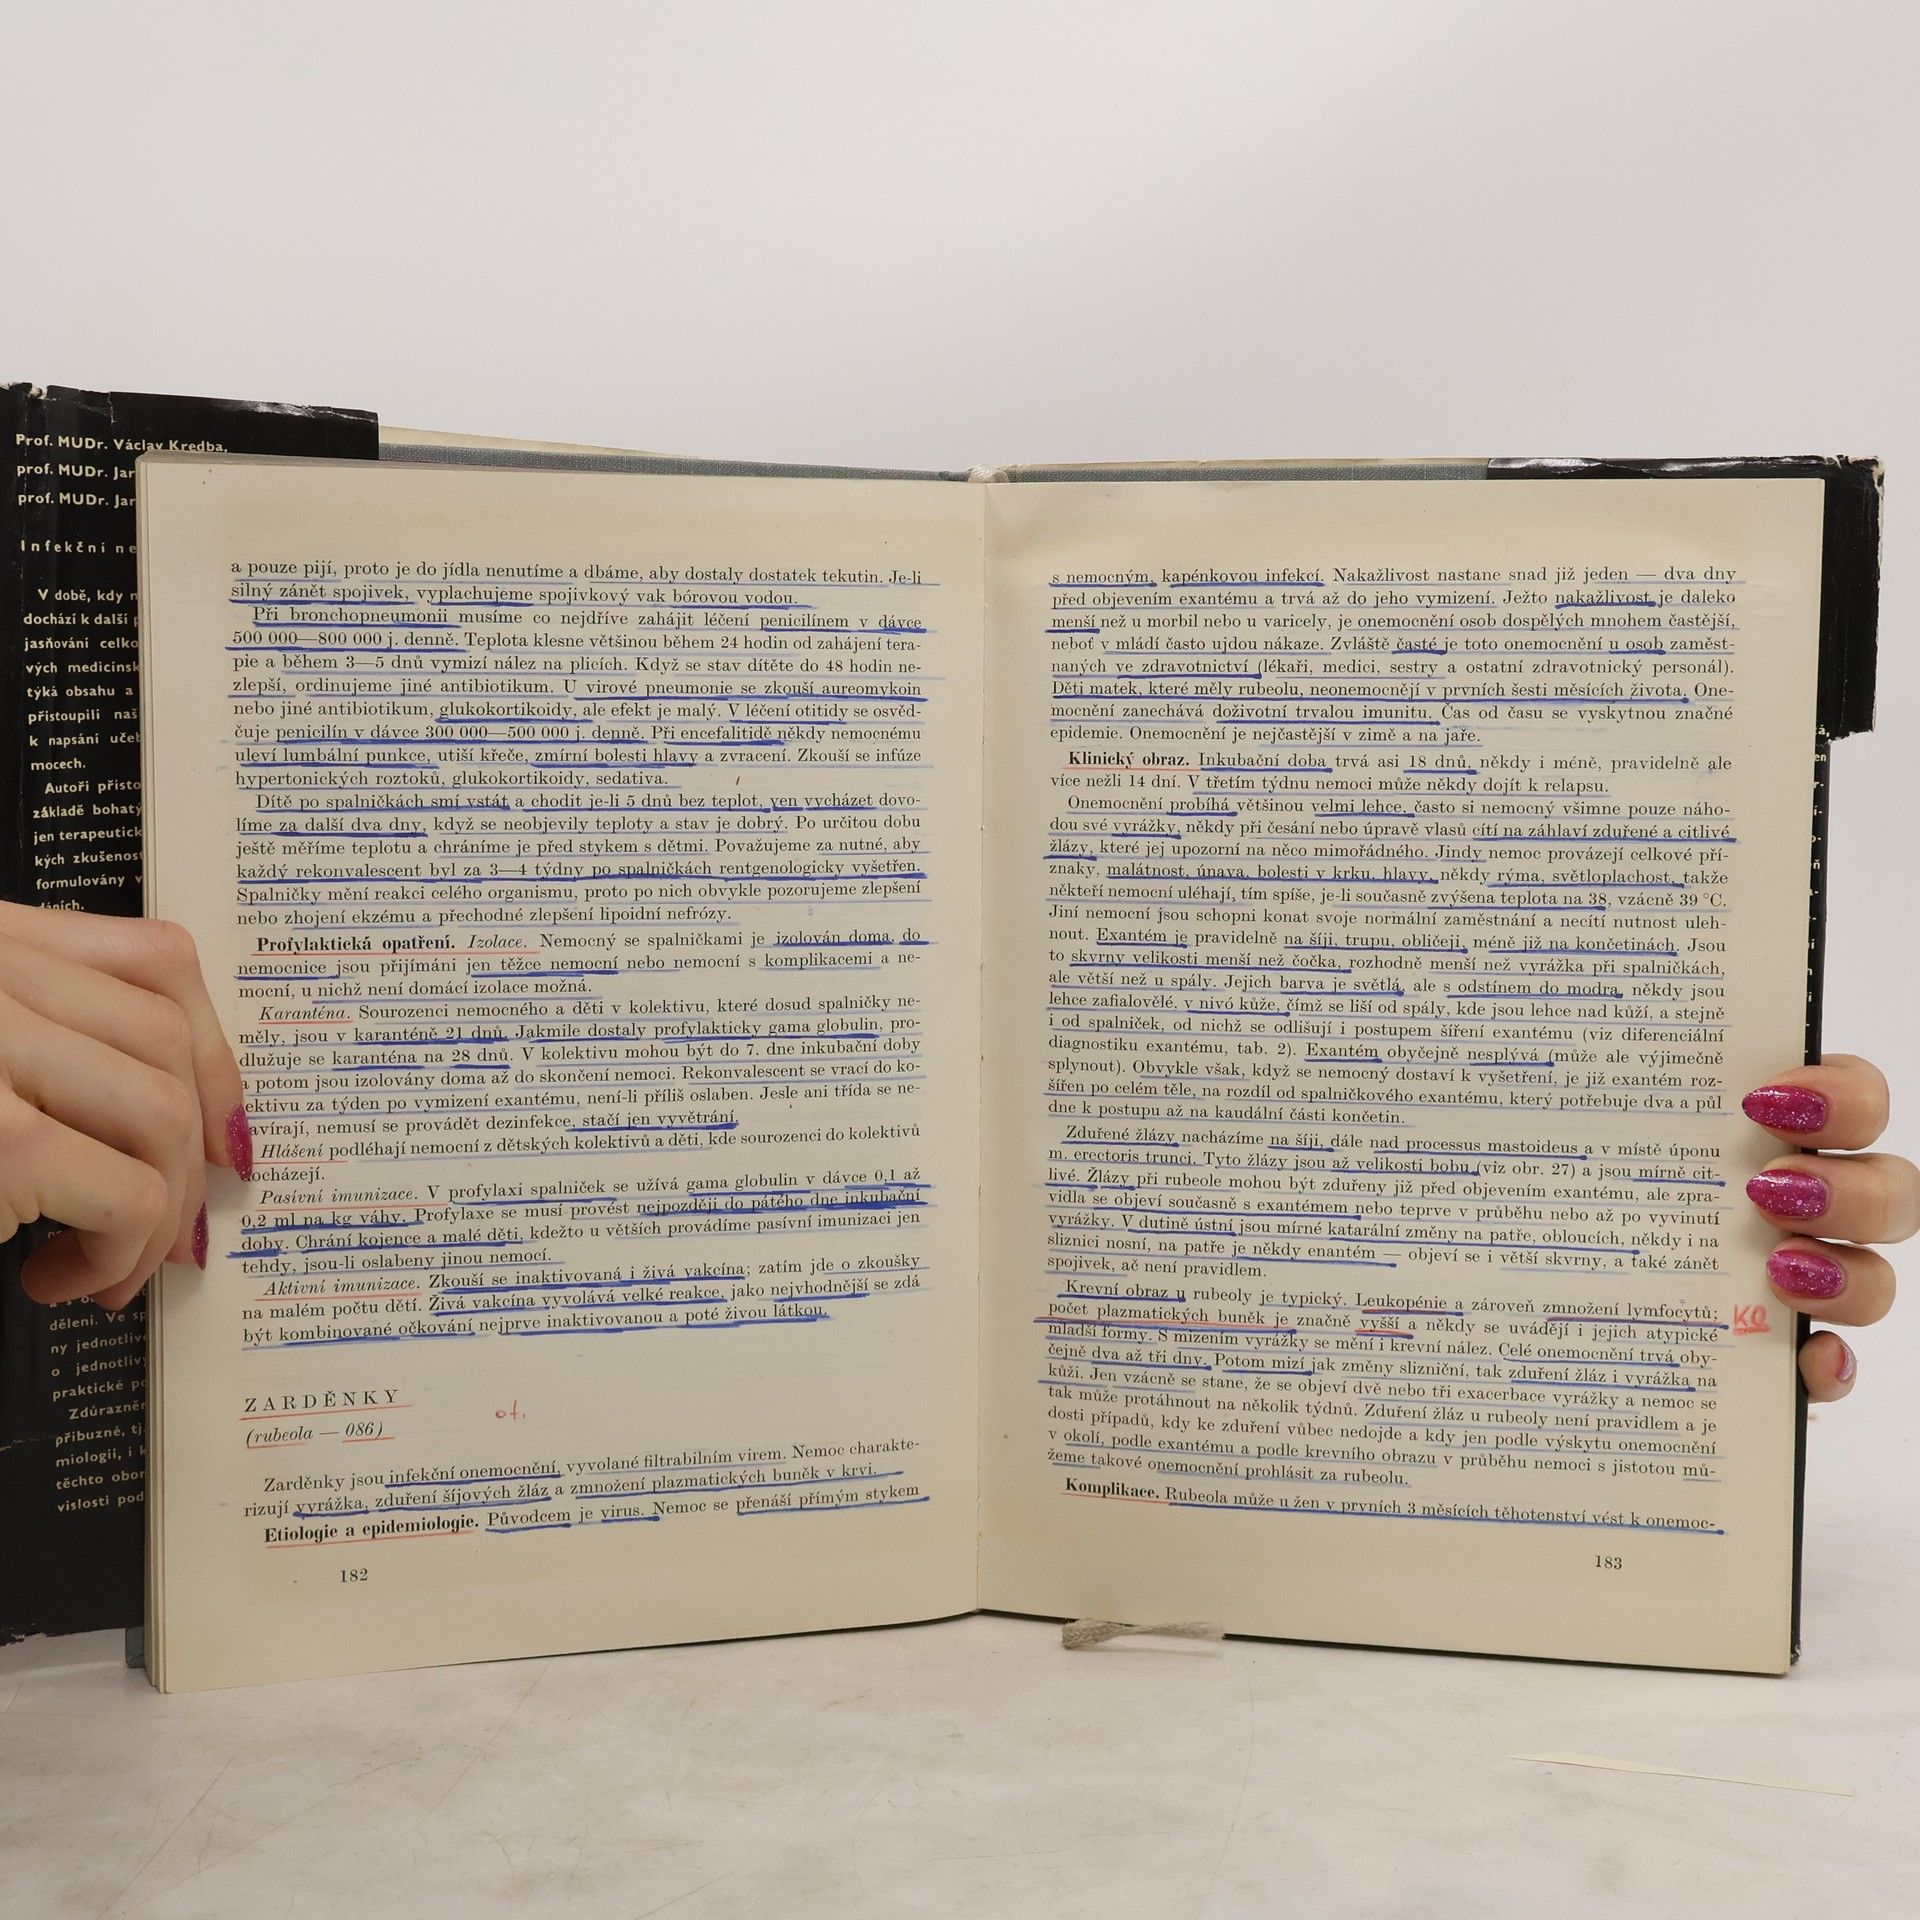 Prof. MUDr. Václav Kredba,
prof. MUDr. Jar
prof. MUDr. Jar
Infekční ne
V době, kdy n
dochází k další p
jasňování celko
vých medicínsk
týká obsahu a
přistoupili naš
k napsání učeb
mocech.
Autoři přisto
základě bohatý
jen terapeutick
kých zkušenost
formulovány v
dáních.
dělení. Ve sp
ny jednotlive
o jednotlivý
praktické po
Zdůrazněn
příbuzné, tj.
miologii, i k
těchto obor
vislosti pod
a pouze pijí, proto je do jídla nenutíme a dbáme, aby dostaly dostatek tekutin. Je-li
silný zánět spojivek, vyplachujeme spojivkový vak bórovou vodou.
Při bronchopneumonii musíme co nejdříve zahájit léčení penicilínem v dávce
500 000—800 000 j. denně. Teplota klesne většinou během 24 hodin od zahájení tera-
pie a během 3—5 dnů vymizí nález na plicích. Když se stav dítěte do 48 hodin ne-
zlepší, ordinujeme jiné antibiotikum. U virové pneumonie se zkouší aureomykoin
nebo jiné antibiotikum, glukokortikoidy, ale efekt je malý. V léčení otitidy se osvěd-
čuje penicilín v dávce 300 000—500 000 j. denně. Při encefalitidě někdy nemocnému
uleví lumbální punkce, utiší křeče, zmírní bolesti hlavy a zvracení. Zkouší se infúze
hypertonických roztoků, glukokortikoidy, sedativa.
Dítě po spalničkách smí vstát a chodit je-li 5 dnů bez teplot, ven vycházet dovo-
líme za další dva dny, když se neobjevily teploty a stav je dobrý. Po určitou dobu
ještě měříme teplotu a chráníme je před stykem s dětmi. Považujeme za nutné, aby
každý rekonvalescent byl za 3—4 týdny po spalničkách rentgenologicky vyšetřen.
Spalničky mění reakci celého organismu, proto po nich obvykle pozorujeme zlepšení
nebo zhojení ekzému a přechodné zlepšení lipoidní nefrózy.
Profylaktická opatření. Izolace. Nemocný se spalničkami je izolován doma, do
nemocnice jsou přijímáni jen těžce nemocní nebo nemocní s komplikacemi a ne-
mocní, u nichž není domácí izolace možná.
Karanténa. Sourozenci nemocného a děti v kolektivu, které dosud spalničky ne-
měly, jsou v karanténě 21 dnů. Jakmile dostaly profylakticky gama globulin, pro-
dlužuje se karanténa na 28 dnů. V kolektivu mohou být do 7. dne inkubační doby
a potom jsou izolovány doma až do skončení nemoci. Rekonvalescent se vrací do ko-
ektivu za týden po vymizení exantému, není-li příliš oslaben. Jesle ani třída se ne-
avírají, nemusí se provádět dezinfekce, stačí jen vyvětrání.
Hlášení podléhají nemocní z dětských kolektivů a děti, kde sourozenci do kolektivů
ocházejí.
Pasívní imunizace. V profylaxi spalniček se užívá gama globulin v dávce 0,1 až
0,2 ml na kg váhy. Profylaxe se musí provést nejpozději do pátého dne inkubační
doby. Chrání kojence a malé děti, kdežto u větších provádíme pasívní imunizaci jen
tehdy, jsou-li oslabeny jinou nemocí.
Aktivní imunizace. Zkouší se inaktivovaná i živá vakcína; zatím jde o zkoušky
na malém počtu dětí. Živá vakcína vyvolává velké reakce, jako nejvhodnější se zdá
být kombinované očkování nejprve inaktivovanou a poté živou látkou.
ZARDĚNKY
ot.
(rubeola — 086)
Zarděnky jsou infekční onemocnění, vyvolané filtrabilním virem. Nemoc charakte-
rizují vyrážka, zduření šíjových žláz a zmnožení plazmatických buněk v krvi.
Etiologie a epidemiologie. Původcem je virus. Nemoc se přenáší přímým stykem
182
s nemocným, kapénkovou infekcí. Nakažlivost nastane snad již jeden — dva dny
před objevením exantému a trvá až do jeho vymizení. Ježto nakažlivost je daleko
menší než u morbil nebo u varicely, je onemocnění osob dospělých mnohem častější,
neboť v mládí často ujdou nákaze. Zvláště časté je toto onemocnění u osob zaměst-
naných ve zdravotnictví (lékaři, medici, sestry a ostatní zdravotnický personál).
Děti matek, které měly rubeolu, neonemocnějí v prvních šesti měsících života. One-
mocnění zanechává doživotní trvalou imunitu. Čas od času se vyskytnou značné
epidemie. Onemocnění je nejčastější v zimě a na jaře.
Klinický obraz. Inkubační doba trvá asi 18 dnů, někdy i méně, pravidelně ale
více nežli 14 dní. V třetím týdnu nemoci může někdy dojít k relapsu.
Onemocnění probíhá většinou velmi lehce, často si nemocný všimne pouze náho-
dou své vyrážky, někdy při česání nebo úpravě vlasů cítí na záhlaví zduřené a citlivé
žlázy, které jej upozorní na něco mimořádného. Jindy nemoc provázejí celkové pří-
znaky, malátnost, únava, bolesti v krku, hlavy, někdy rýma, světloplachost, takže
někteří nemocní uléhají, tím spíše, je-li současně zvýšena teplota na 38, vzácně 39 °C.
Jiní nemocní jsou schopni konat svoje normální zaměstnání a necítí nutnost uleh-
nout. Exantém je pravidelně na šíji, trupu, obličeji, méně již na končetinách. Jsou
to skvrny velikosti menší než čočka, rozhodně menší než vyrážka při spalničkách,
ale větší než u spály. Jejich barva je světlá, ale s odstínem do modra, někdy jsou
lehce zafialovělé, v nivó kůže, čímž se liší od spály, kde jsou lehce nad kůží, a stejně
i od spalniček, od nichž se odlišují i postupem šíření exantému (viz diferenciální
diagnostiku exantému, tab. 2). Exantém obyčejně nesplývá (může ale výjimečně
splynout). Obvykle však, když se nemocný dostaví k vyšetření, je již exantém roz-
šířen po celém těle, na rozdíl od spalničkového exantému, který potřebuje dva a půl
dne k postupu až na kaudální části končetin.
Zduřené žlázy nacházíme na šíji, dále nad processus mastoideus a v místě úponu
m. erectoris trunci. Tyto žlázy jsou až velikosti bobu (viz obr. 27) a jsou mírně cit-
livé. Žlázy při rubeole mohou být zduřeny již před objevením exantému, ale zpra-
vidla se objeví současně s exantémem nebo teprve v průběhu nebo až po vyvinutí
vyrážky. V dutině ústní jsou mírné katarální změny na patře, obloucích, někdy i na
sliznici nosní, na patře je někdy enantém — objeví se i větší skvrny, a také zánět
spojivek, ač není pravidlem.
Krevní obraz u rubeoly je typický. Leukopénie a zároveň zmnožení lymfocytů;
počet plazmatických buněk je značně vyšší a někdy se uvádějí i jejich atypické KO
mladší formy. S mizením vyrážky se mění i krevní nález. Celé onemocnění trvá oby-
čejně dva až tři dny. Potom mizí jak změny slizniční, tak zduření žláz i vyrážka na
kůži. Jen vzácně se stane, že se objeví dvě nebo tři exacerbace vyrážky a nemoc se
tak může protáhnout na několik týdnů. Zduření žláz u rubeoly není pravidlem a je
dosti případů, kdy ke zduření vůbec nedojde a kdy jen podle výskytu onemocnění
v okolí, podle exantému a podle krevního obrazu v průběhu nemoci s jistotou mů-
žeme takové onemocnění prohlásit za rubeolu.
Komplikace. Rubeola může u žen v prvních 3 měsících těhotenství vést k onemoc-
183